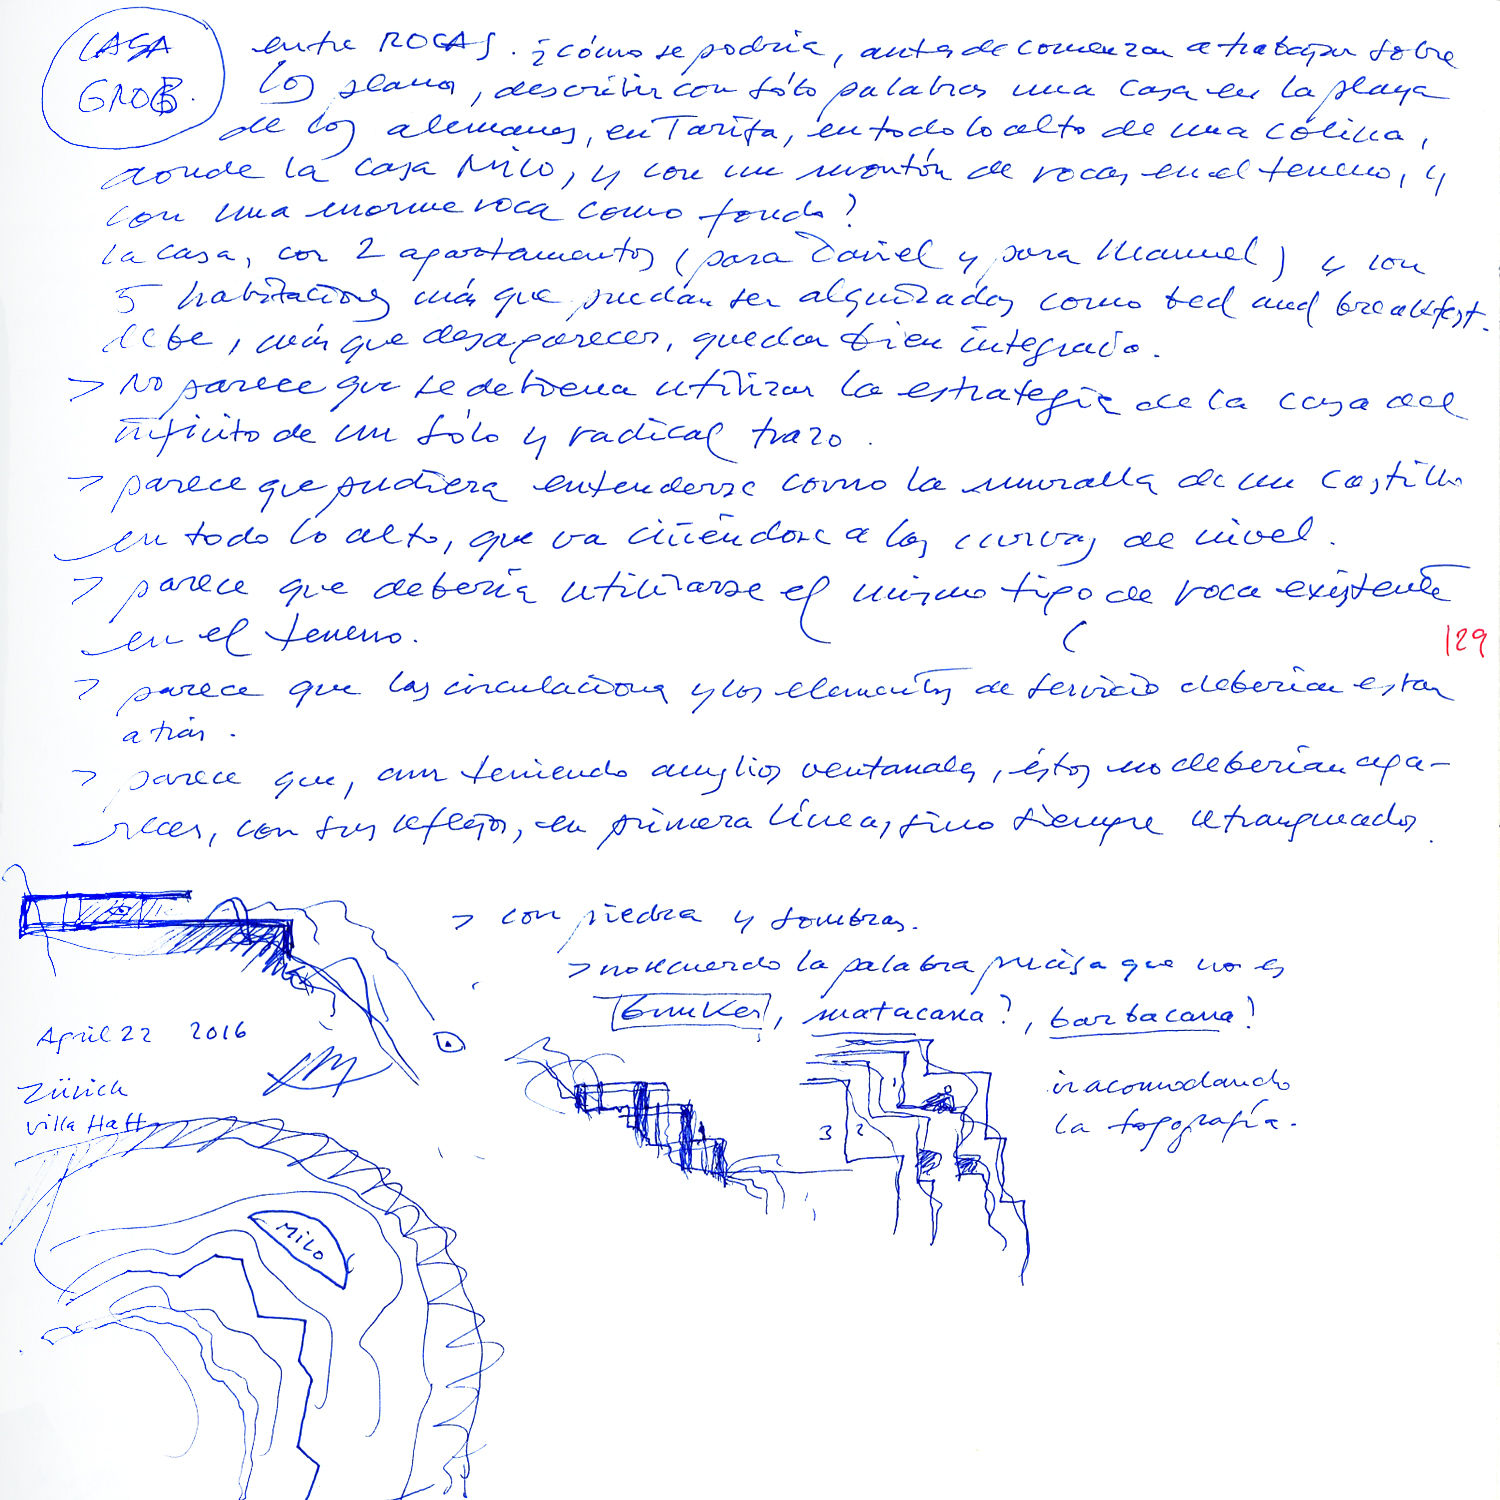 CASA
GROB.
entre ROCAS. ¿cómo se podría, antes de comenzar a trabajar sobre
los planos, describir con sólo palabras una casa en la playa
de los alemanes, en Tarifa, en todo lo alto de una colina,
donde la casa MILO, y con un montón de rocas en el terreno, y
con una enorme roca como fondo?
La casa, con 2 apartamentos (para Daniel y para Manuel) y con
5 habitaciones más que puedan ser alquiladas como bed and breakfast.
debe, más que desaparecer, quedar bien integrada.
> No parece que se debiera utilizar la estrategia de la casa del
infinito de un sólo y radical trazo.
> parece que pudiera entenderse como la muralla de un castillo
en todo lo alto, que va ciñéndose a las curvas de nivel.
> parece que debería utilizarse el mismo tipo de roca existente
en el terreno.
129
> parece que las circulaciones y los elementos de servicio deberían estar
atrás.
> parece que, aun teniendo amplios ventanales, éstos no deberían apa-
recer, con sus reflejos, en primera línea, sino siempre retranqueados.
> con piedra y sombras.
> no recuerdo la palabra precisa que no es
bunker, matacana?, barbacana!
ir acomodando
la topografía.
April 22 2016
Zürich
Villa Hatt
1
3 2
MILO